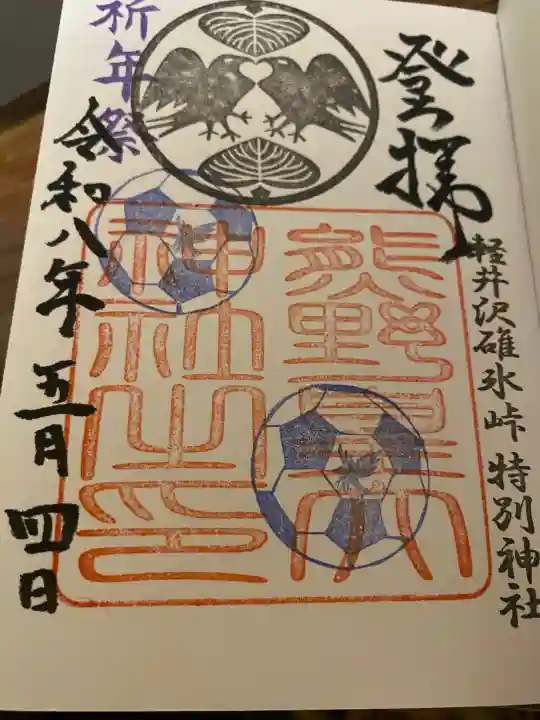 登拝
軽井沢碓氷峠 特別神社
熊野皇大
神社之印
祈年祭
令和八年五月四日